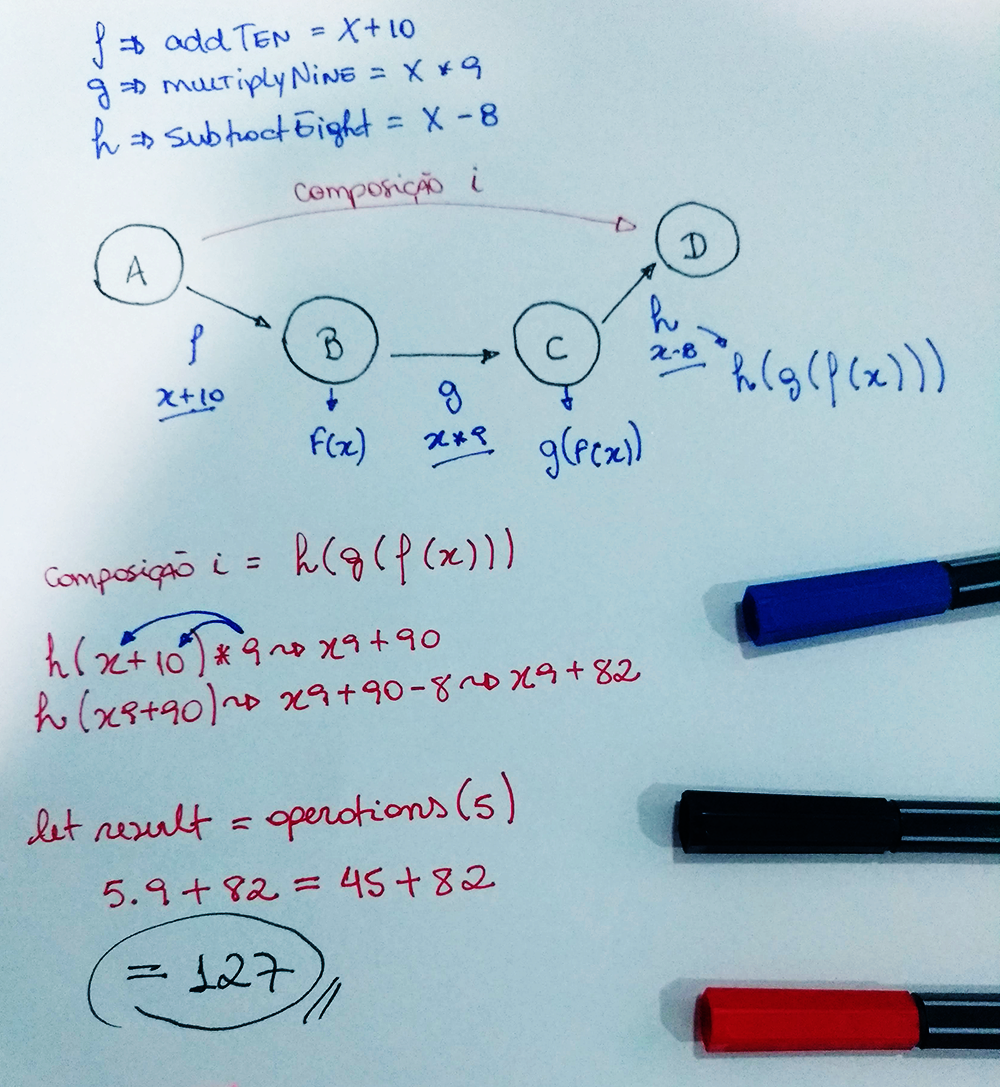 f ⇒ addTEN = X+10
g ⇒ multiplyNiNE = X * 9
h ⇒ SubtractEight = X - 8
composição i
A
B
C
D
f
x+10
F(x)
g
x*9
g(F(x))
h
x-8
h(g(f(x)))
composição i = h(g(f(x)))
h(x+10)*9 ⇝ x9+90
h(x9+90) ⇝ x9+90-8 ⇝ x9+82
let result = operations(5)
5.9+82 = 45+82
= 127 //